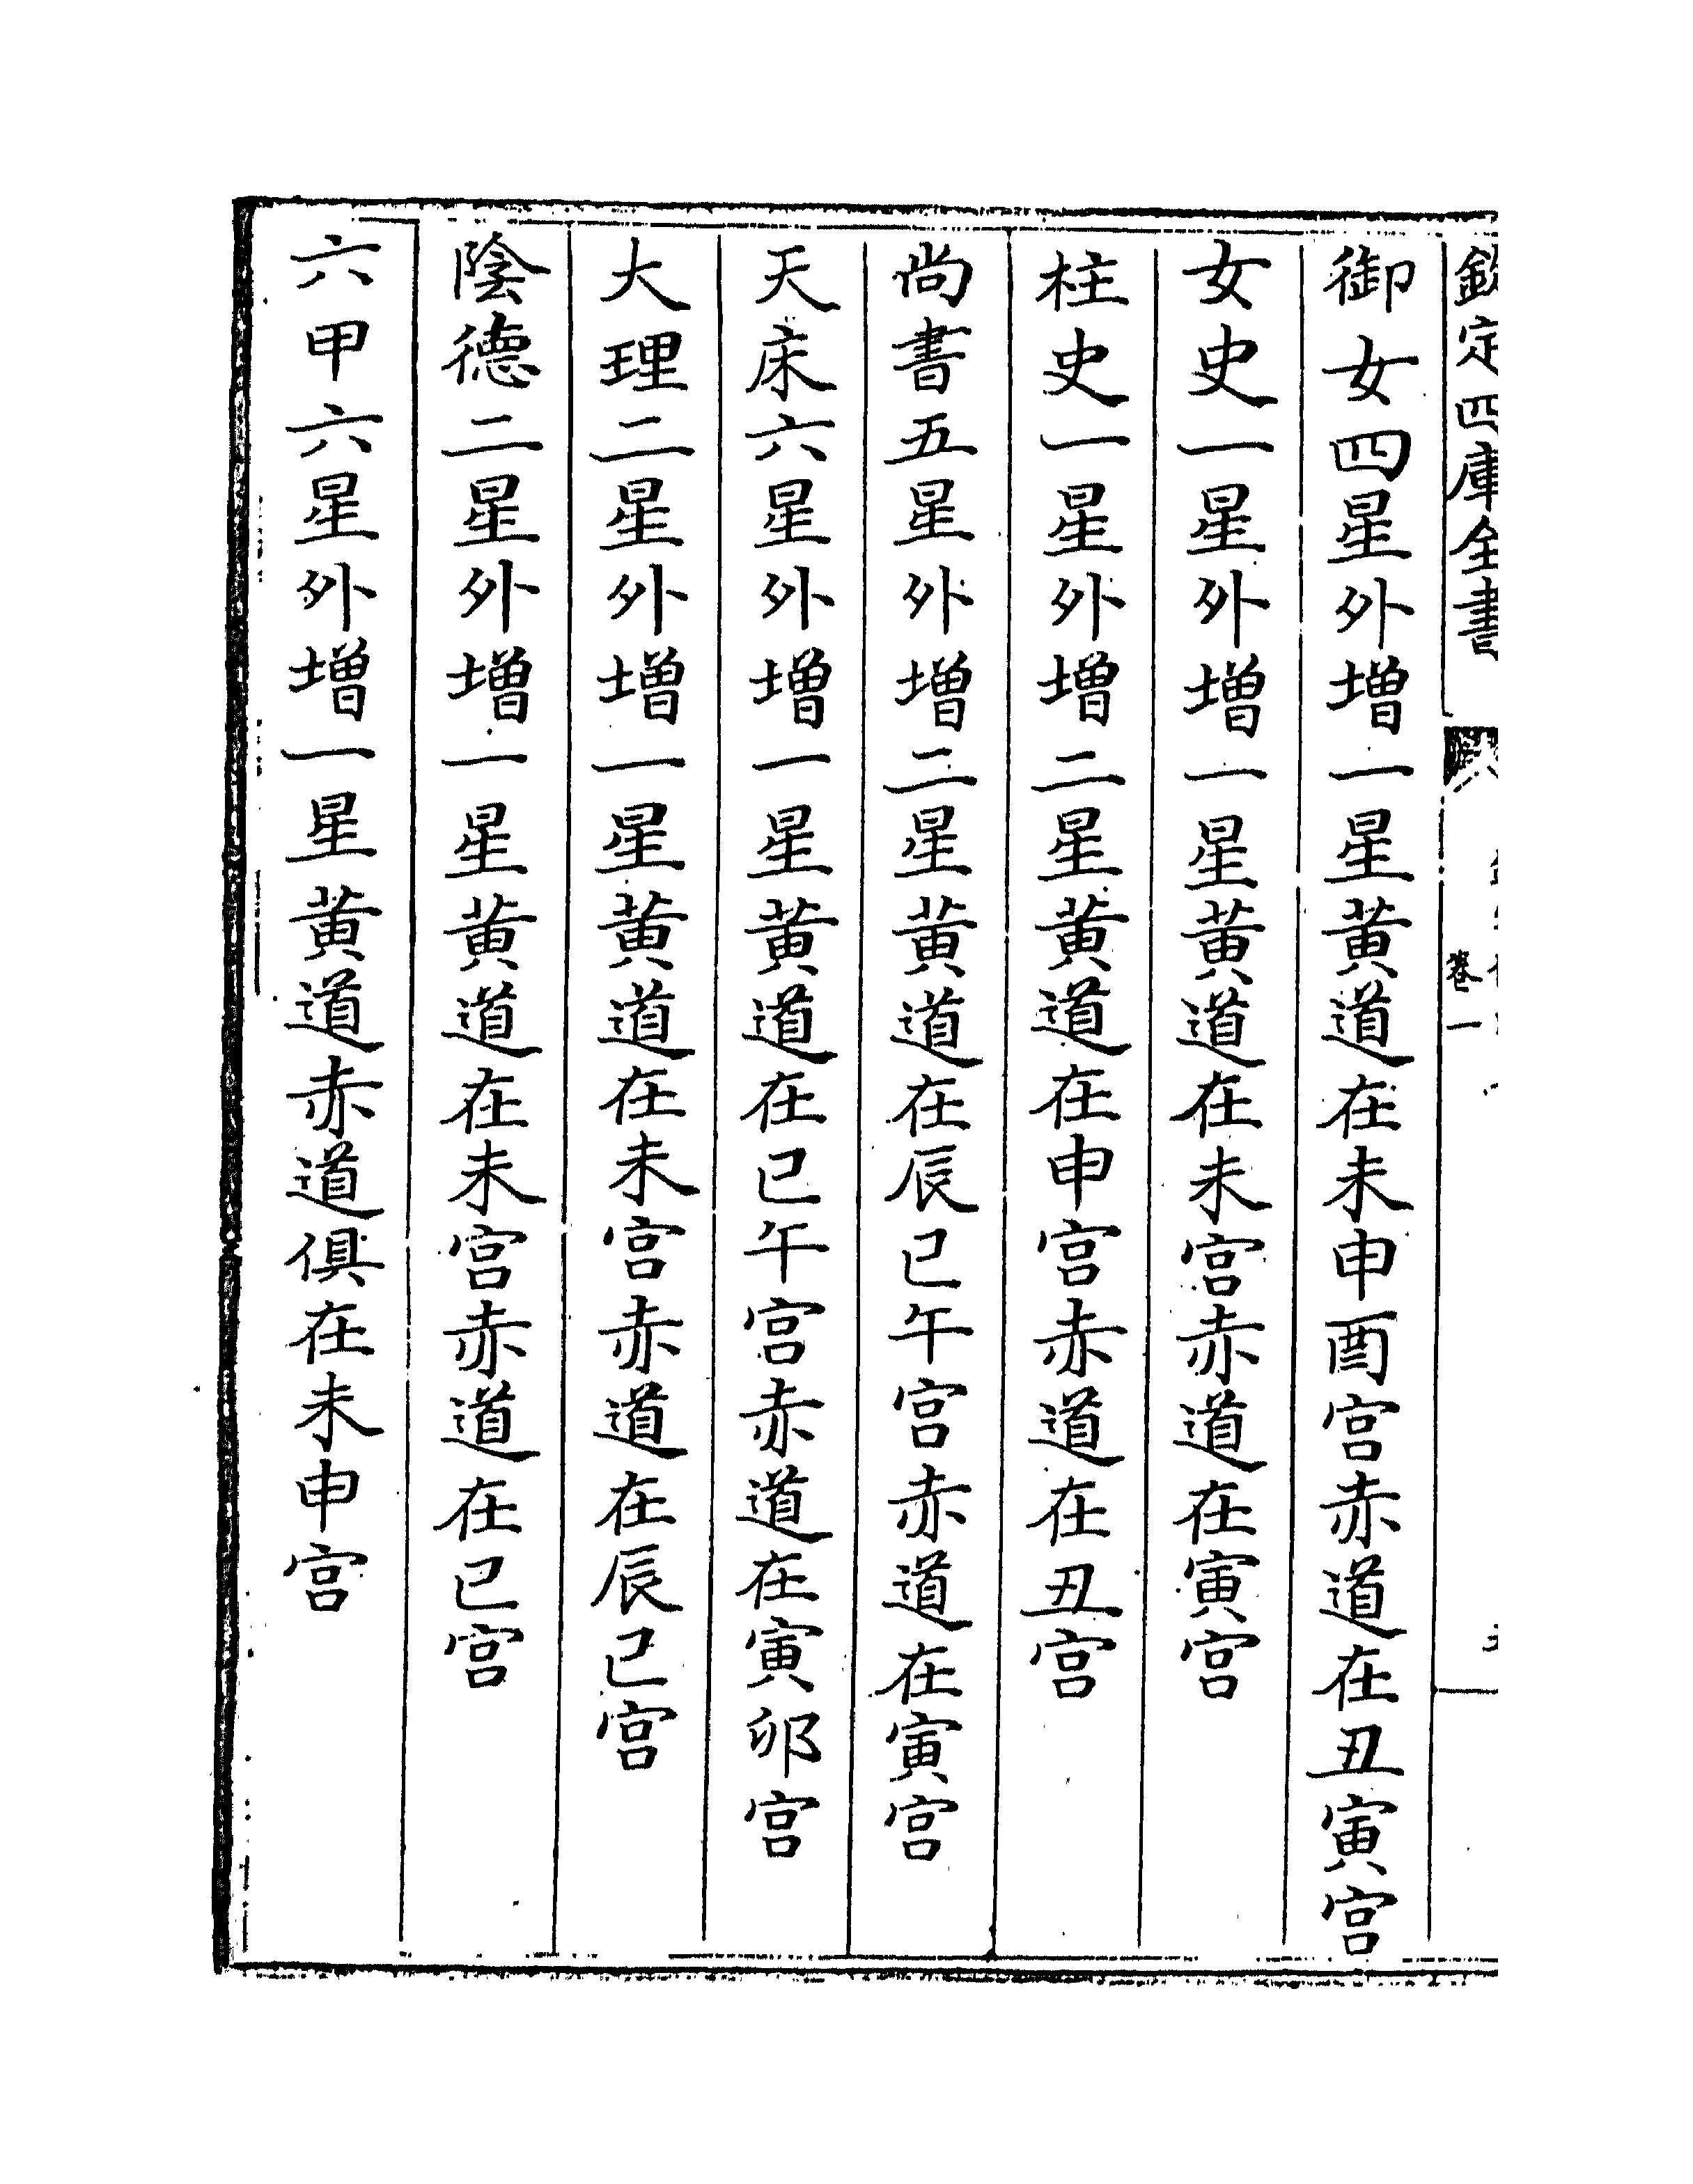 欽定四庫全書
卷一
御女四星外增一星黄道在未申酉宫赤道在丑寅宫
女史一星外增一星黄道在未宫赤道在寅宫
柱史一星外增二星黄道在申宫赤道在丑宫
尚書五星外增二星黄道在辰巳午宫赤道在寅宫
天床六星外增一星黄道在巳午宫赤道在寅卯宫
大理二星外增一星黄道在未宫赤道在辰巳宫
陰德二星外增一星黄道在未宫赤道在巳宫
六甲六星外增一星黄道赤道俱在未申宫